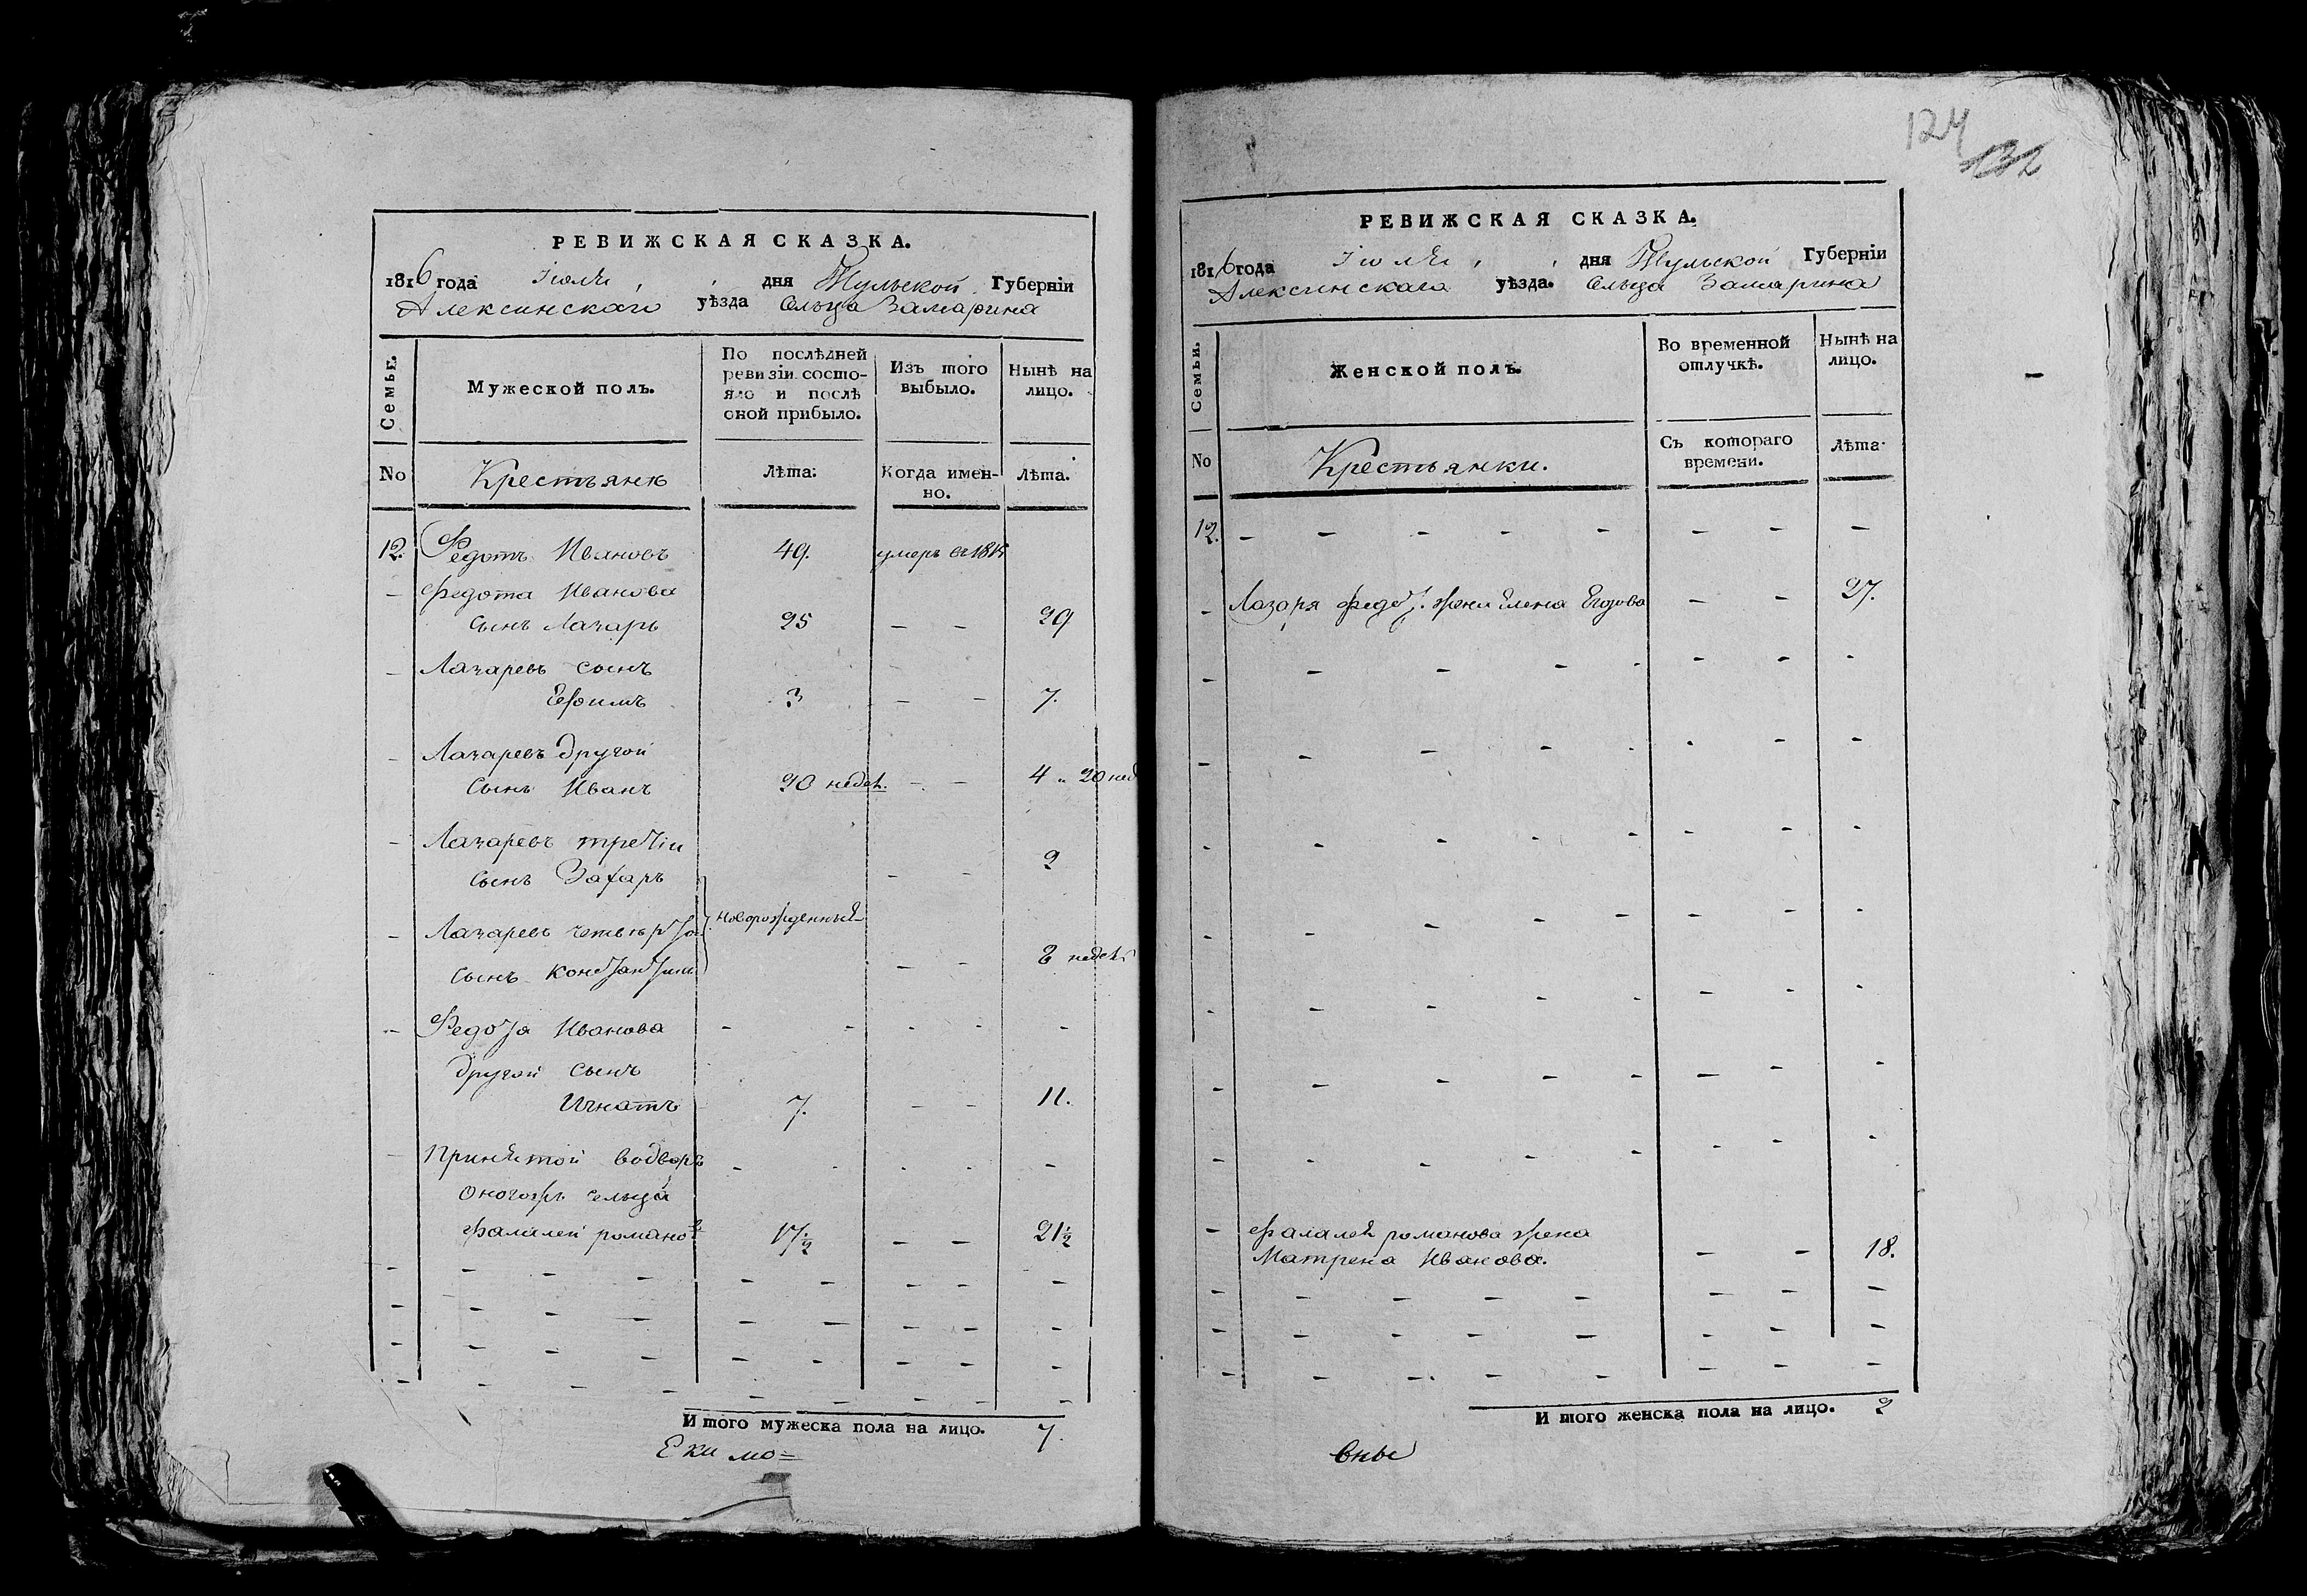 РЕВИЖСКАЯ СКАЗКА.
1816 года Іюля дня Тульской Губерніи
Алексинскаго уѣзда Сельца Замарина
Семьи.
Мужеской полъ.
По послѣдней
ревизіи состо-
яло и послѣ
оной прибыло.
Изъ того
выбыло.
Нынѣ на
лицо.
No
Крестьянѣ
Лѣта.
Когда имен-
но.
Лѣта.
12. Федотъ Ивановъ 49. умеръ въ 1815
Федота Иванова
сынъ Лазарь 25 — — 29
Лазаревъ сынъ
Ефимъ 3 — — 7.
Лазаревъ другой
сынъ Иванъ 20 недел. — — 4 и 20 нед
Лазаревъ третіи
сынъ Захаръ — — 2
Новорожденныя
Лазаревъ четвертой
сынъ Константинъ — — 8 недель
Федота Иванова
другой сынъ
Игнатъ 7. — — 11.
Принятой водворъ
оногожъ сельца
Фалалей романовъ 17 1/2 — — 21 1/2
Итого мужеска пола на лицо. 7.
Екимо=
124
132
РЕВИЖСКАЯ СКАЗКА.
1816 года Іюля дня Тульской Губерніи
Алексинскаго уѣзда. Сельца Замарина
Семьи.
Женской полъ.
Во временной
отлучкѣ.
Нынѣ на
лицо.
No
Крестьянки.
Съ котораго
времени.
Лѣта.
12.
Лазаря федот. жена Елена Егорова — — 27.
Фалалея романова жена
Матрена Иванова. — — 18.
Итого женска пола на лицо. 2
вны